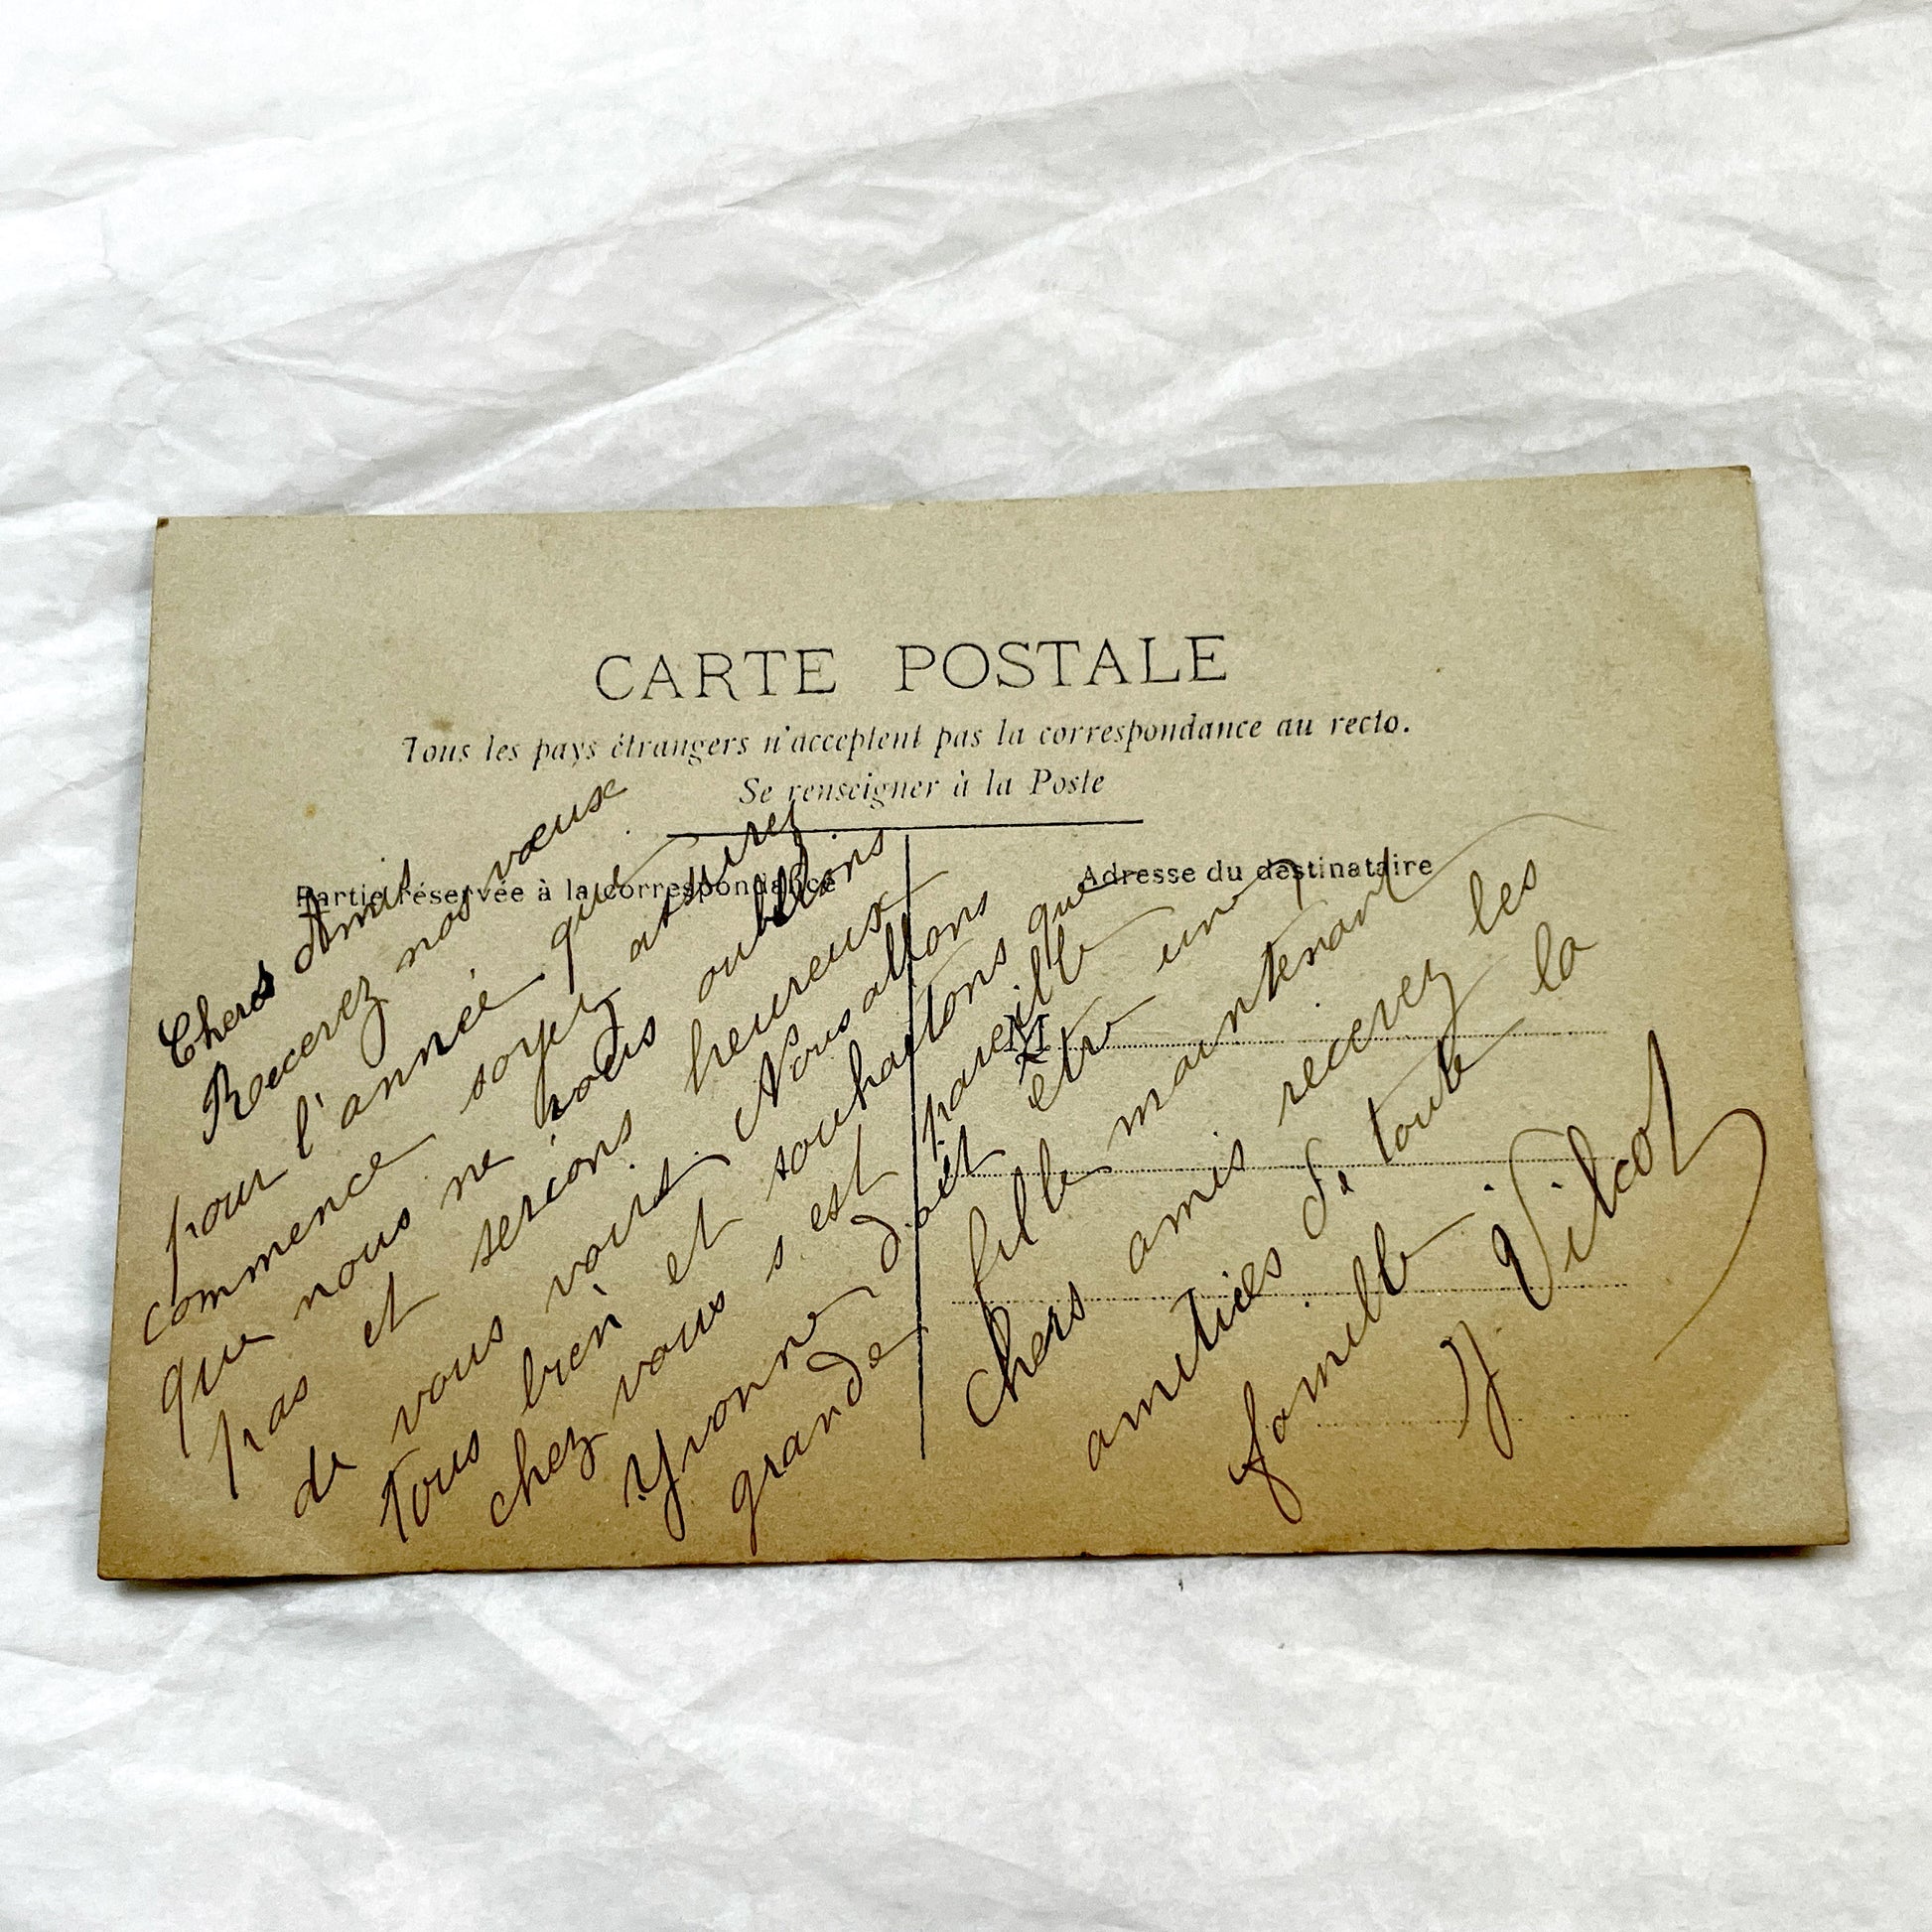 CARTE POSTALE
Tous les pays étrangers n'acceptent pas la correspondance au recto.
Se renseigner à la Poste
Partie réservée à la correspondance
Adresse du destinataire
M
Chers Amis
Recevez nos vœuse
pour l'année que
commence soyez assurez
que nous ne vous oublions
pas et serions heureux
de vous voirs. Nous allons
tous bien et souhaitons que
chez vous s est pareille
Yvonne doit etre une
grande fille maintenant
Chers amis recevez les
amitiés de toute la
famille.
Vilcot